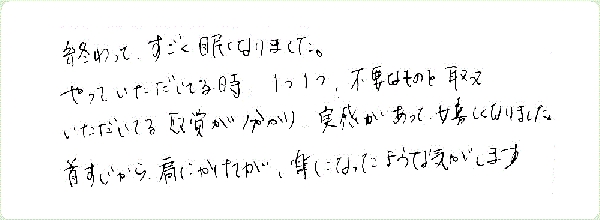 終わって、すごく眠くなりました。
やっていただいてる時、1つ1つ、不要なものを取って
いただいてる感覚が分かり、実感があって、嬉しくなりました。
首すじから、肩にかけてが、楽になったような気がします